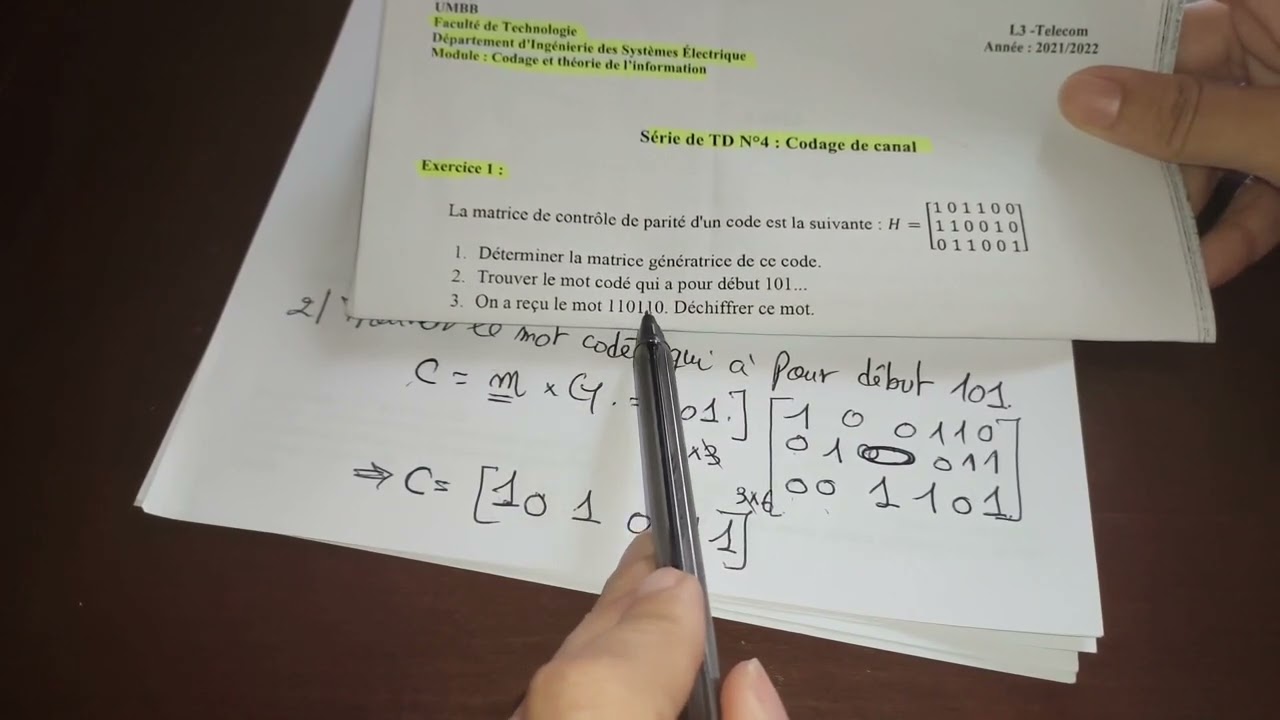 UMBB
Faculté de Technologie
Département d'Ingénierie des Systèmes Électrique
Module : Codage et théorie de l'information
L3 -Telecom
Année : 2021/2022
Série de TD N°4 : Codage de canal
Exercice 1 :
La matrice de contrôle de parité d'un code est la suivante : H =
[1 0 1 1 0 0]
1 1 0 0 1 0
[0 1 1 0 0 1]
1. Déterminer la matrice génératrice de ce code.
2. Trouver le mot codé qui a pour début 101...
3. On a reçu le mot 110110. Déchiffrer ce mot.
2/ le mot codé qui à Pour début 101.
C = m × G. = 01.] [1 0 0 1 1 0
0 1 0 1 1
0 0 1 1 0 1]
×3
3×6
⇒ C= [1 0 1 0 1]